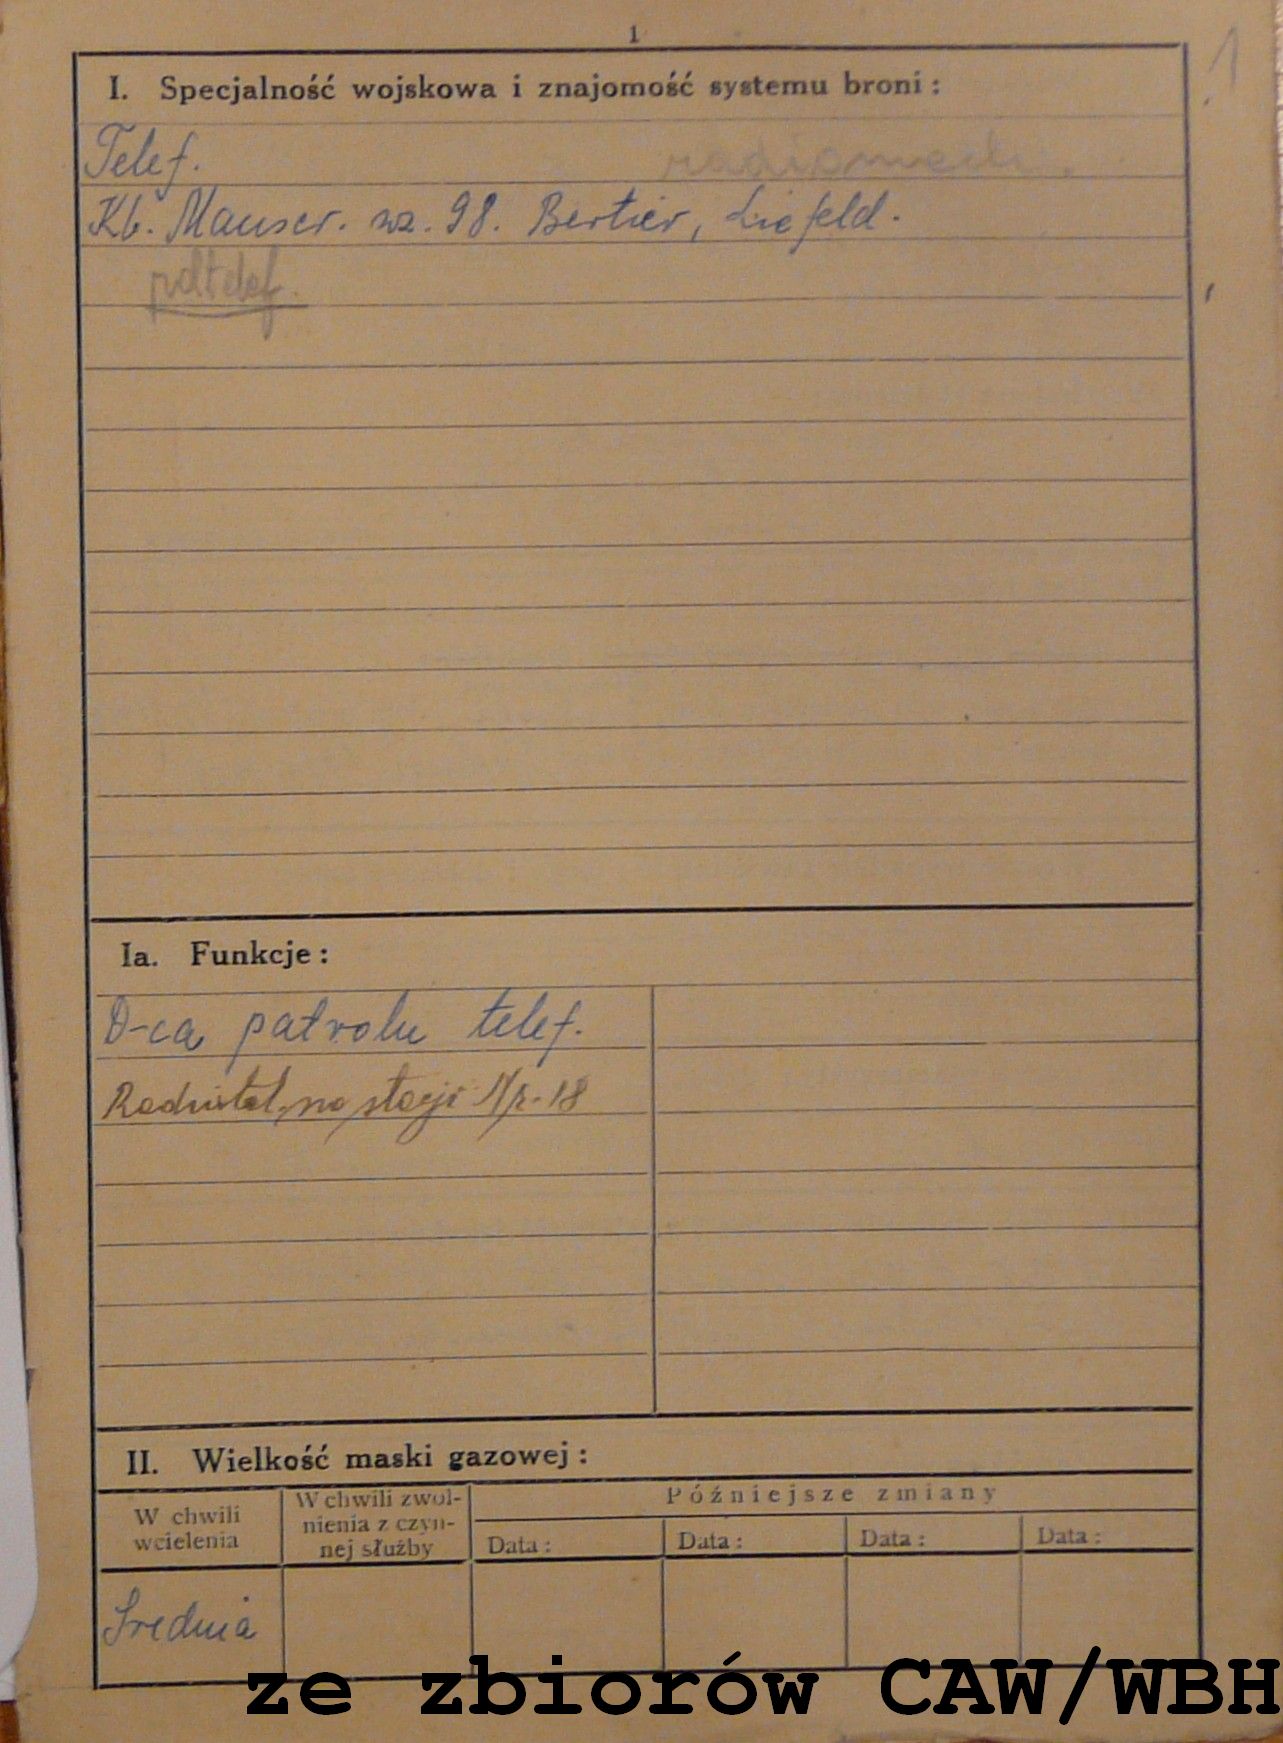 1
1
I. Specjalność wojskowa i znajomość systemu broni :
Telef.
Kb. Mauser. wz. 98. Bertier, Liefeld.
Ia. Funkcje :
D-ca patrolu telef.
Radiotel. na stacji N/2-18
II. Wielkość maski gazowej :
W chwili wcielenia
W chwili zwol-
nienia z czyn-
nej służby
Późniejsze zmiany
Data : Data : Data : Data :
Średnia
ze zbiorów CAW/WBH